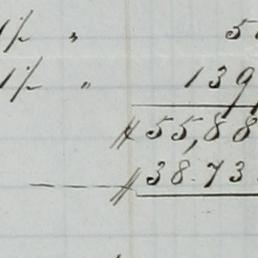 1/- " 5
1/- " 139
$55,88
$38.73